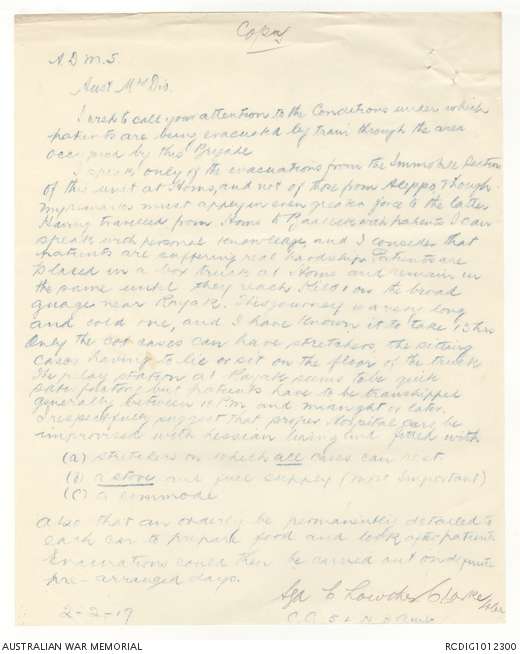 Copy
A.D.M.S.
Aust Mtd Div.
I wish to call your attention to the Conditions under which
patients are being evacuated by train through the area
occupied by this Brigade
I speak only of the evacuations from the Immobile Section
of this unit at Homs, and not of those from Aleppo though
my remarks must apply in even greater force to the latter
Having travelled from Homs to Baalbek with patients I can
speak with personal knowledge, and I consider that
patients are suffering real hardship. Patients are
placed in a box truck at Homs and remain in
the same until they reach Kilo 1 on the broad
guage near Rayak. This journey is a very long
and cold one, and I have known it to take 13 hrs
Only the cot cases can have stretchers, the sitting
cases having to lie or sit on the floor of the truck
The relay station at Rayak seems to be quite
satisfactory but patients have to be transhipped
generally between 10 PM and midnight or later.
I respectfully suggest that proper Hospital cars be
improvised with hessian lining and fitted with
(a) stretchers on which all cases can rest
(b) a stove and fuel supply (most Important)
(c) a commode
Also that an orderly be permanently detailed to
each car to prepare food and look after patients
Evacuations could then be carried out on definite
pre-arranged days.
Sgd C Lowther Clarke
2-2-19
C.O. 5 L.H.
AUSTRALIAN WAR MEMORIAL
RCDIG1012300